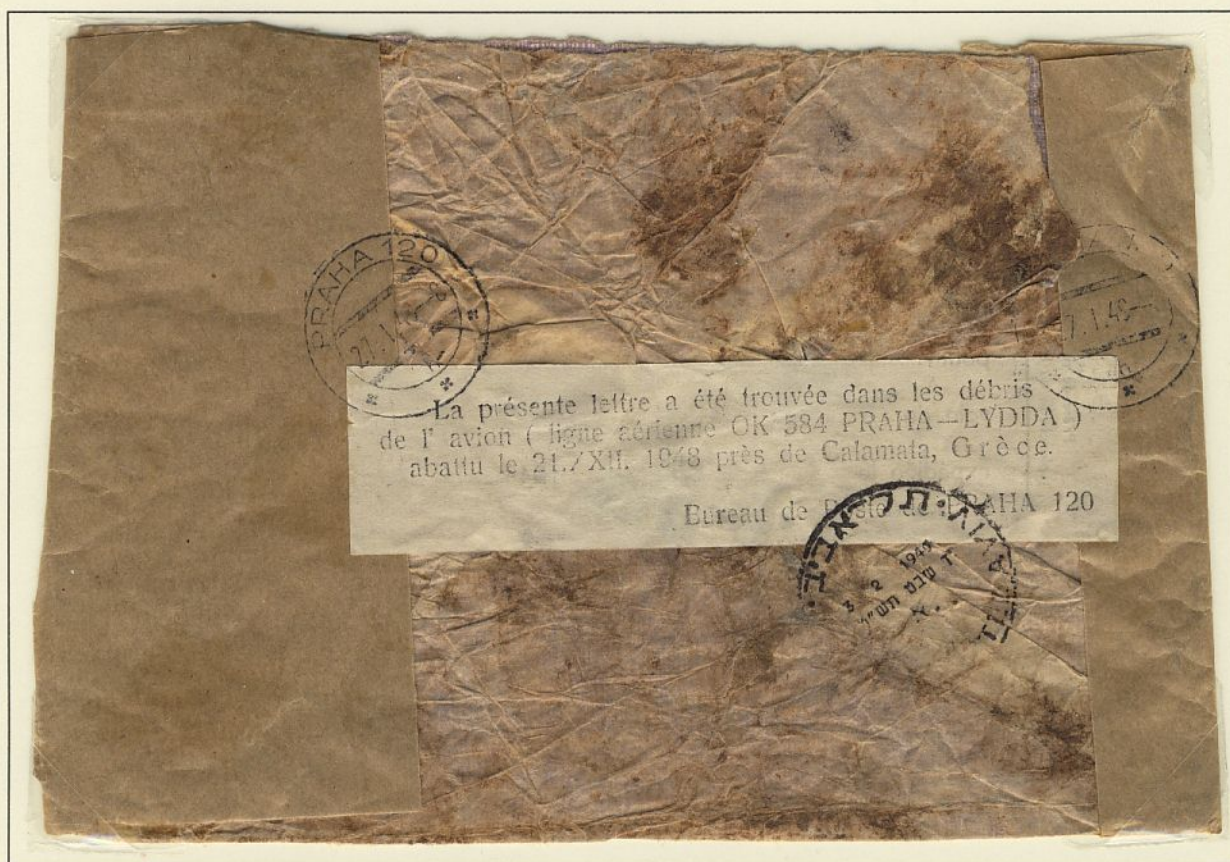 PRAHA 120
27.I.
7.I.49-
La présente lettre a été trouvée dans les débris
de l' avion ( ligne aérienne OK 584 PRAHA—LYDDA )
abattu le 21./XII. 1948 près de Calamata, Grèce.
Bureau de Poste de PRAHA 120
תל-אביב · TEL AVIV
3 2 1949
ד שבט תש"ט
א